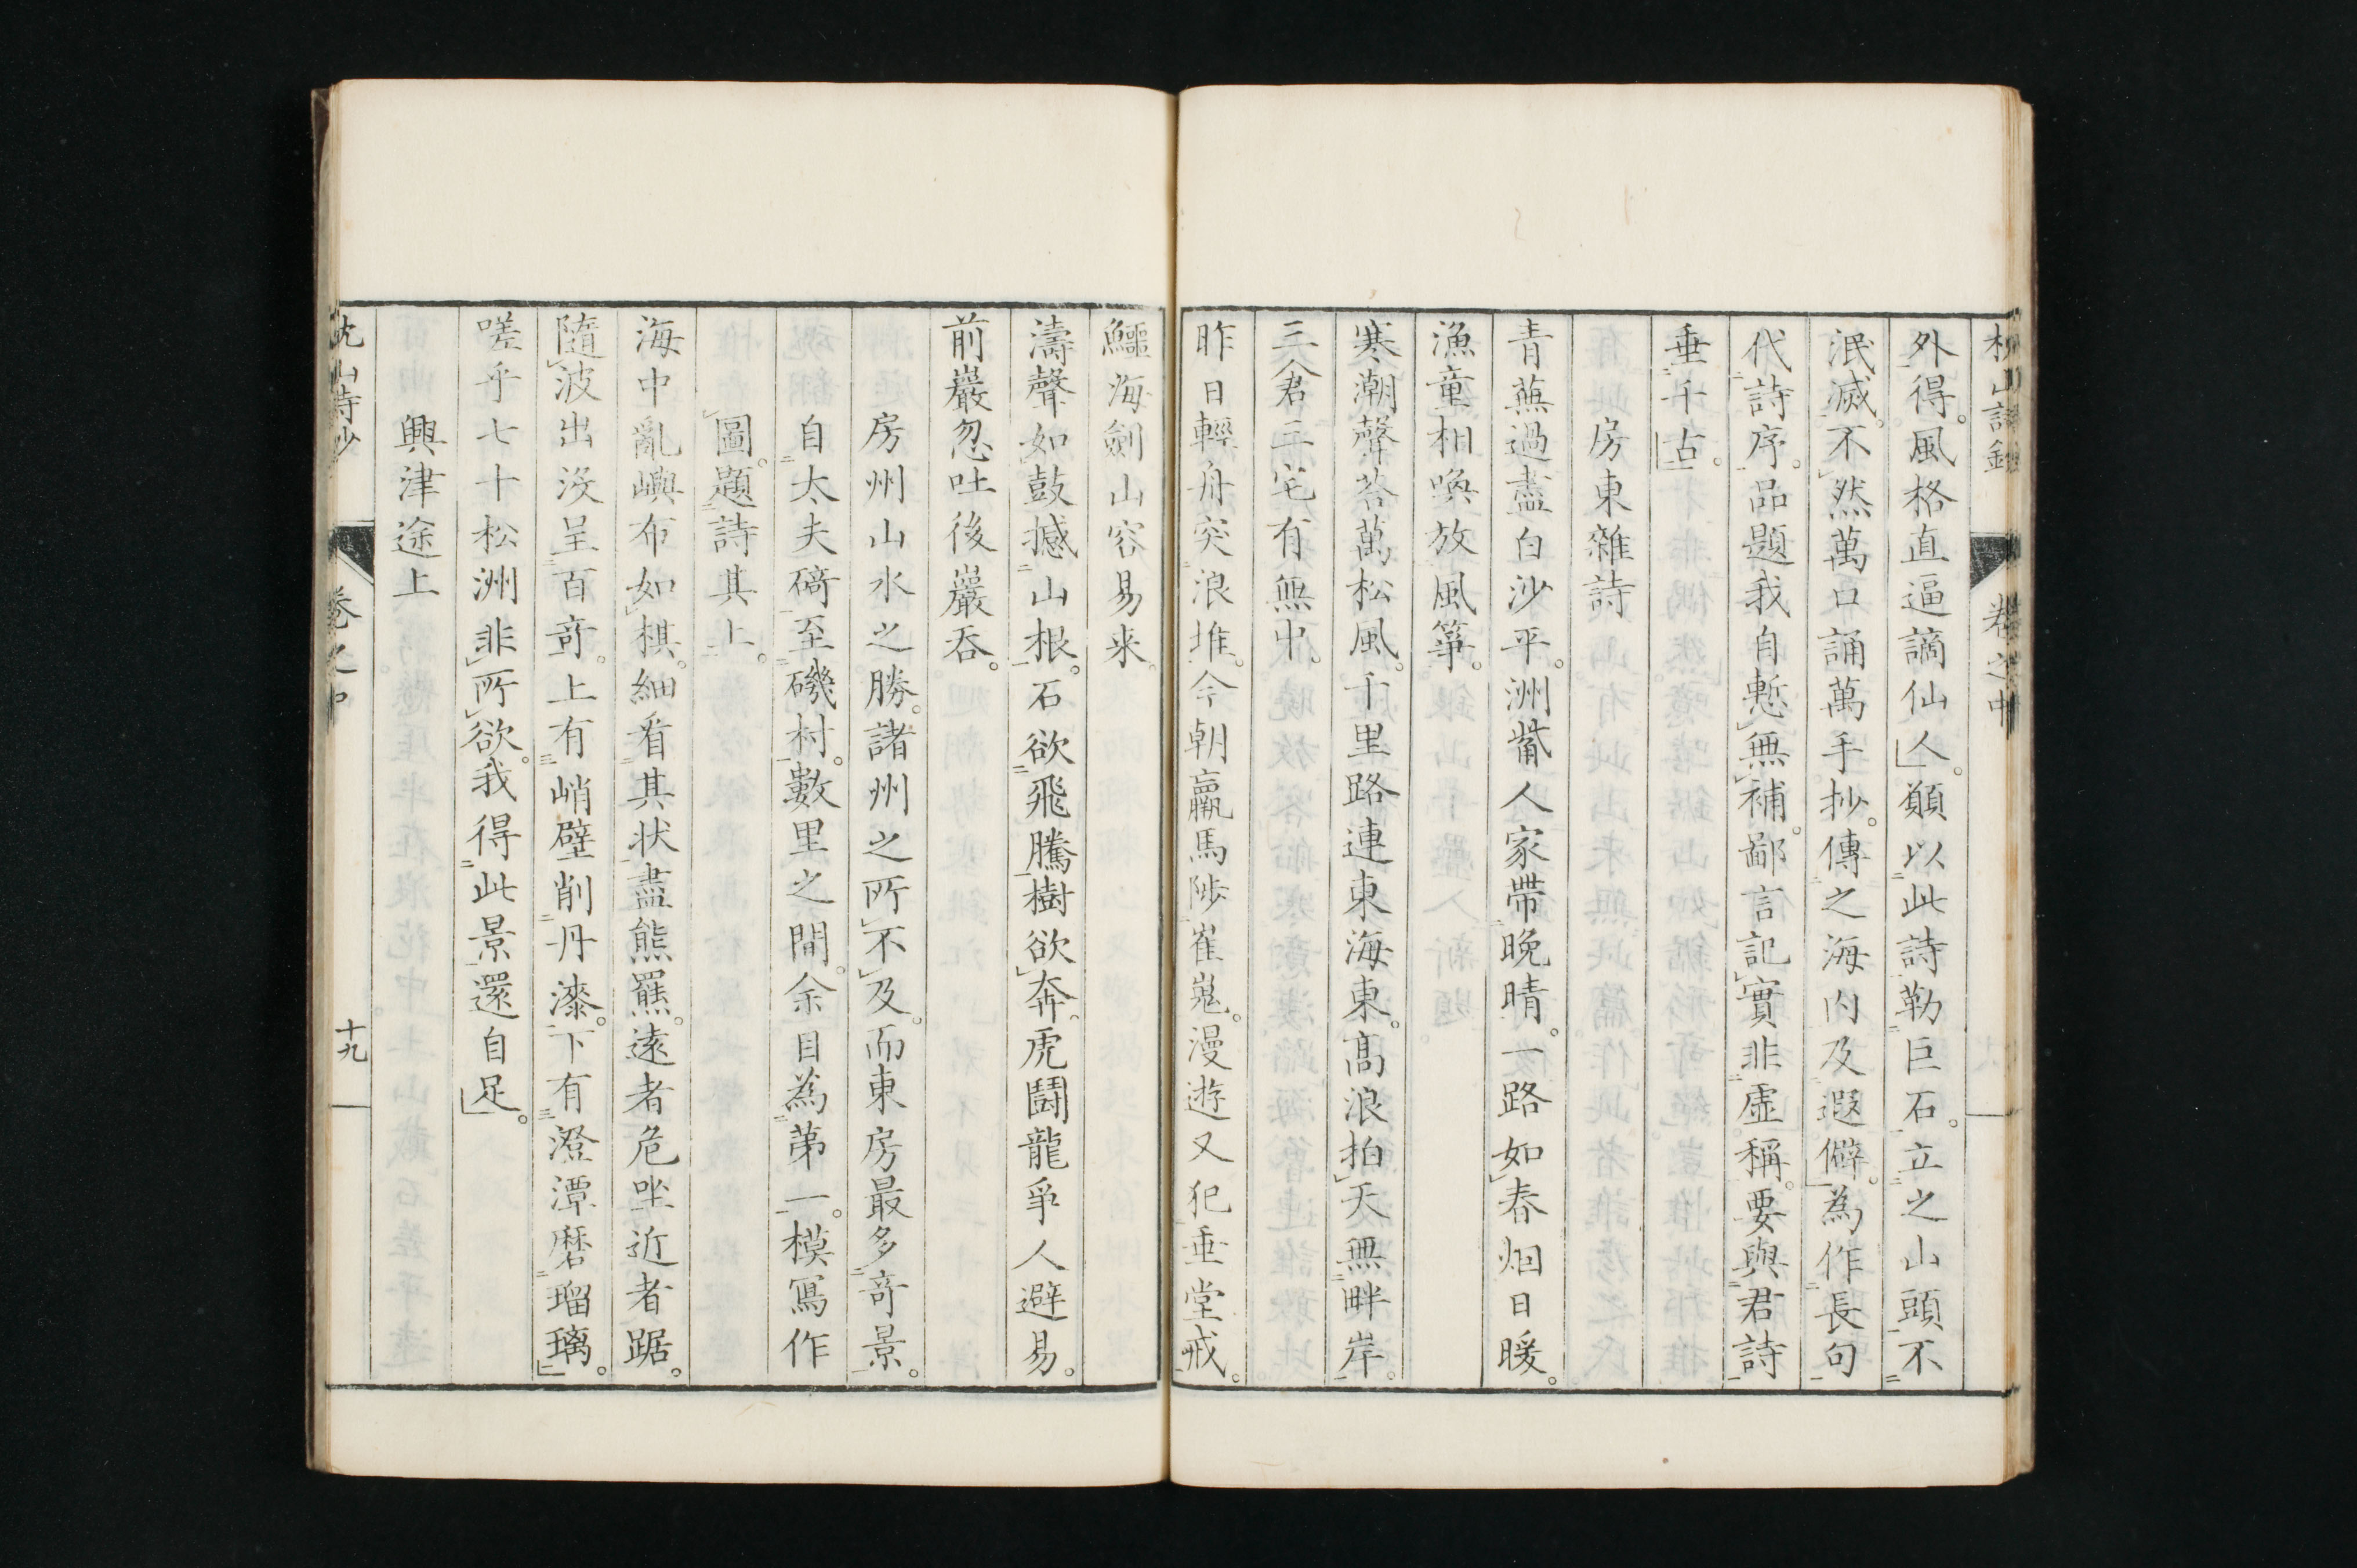 外得。風格直逼謫仙人。願以此詩勒巨石。立之山頭不
泯滅。不然萬口誦萬手抄。傳之海内及遐僻。為作長句
代詩序。品題我自慙無補。鄙言記實非虛稱。要與君詩
垂千古。
房東雜詩
青蕪過盡白沙平。洲觜人家帶晚晴。一路如春烟日暖。
漁童相喚放風箏。
寒潮聲荅萬松風。千里路連東海東。高浪拍天無畔岸。
三君三宅有無中。
昨日輕舟突浪堆。今朝羸馬陟崔嵬。漫遊又犯垂堂戒。
鱷海劍山容易来。
濤聲如鼓撼山根。石欲飛騰樹欲奔。虎鬪龍爭人避易。
前巖忽吐後巖吞。
房州山水之勝。諸州之所不及。而東房最多奇景。
自太夫碕至磯村。數里之間。余目為第一。模寫作
圖。題詩其上。
海中亂嶼布如棋。細看其状盡熊羆。遠者危坐近者踞。
隨波出沒呈百奇。上有峭壁削丹漆。下有澄潭磨瑠璃。
嗟乎七十松洲非所欲。我得此景還自足。
興津途上
山詩鈔
卷之中
十九